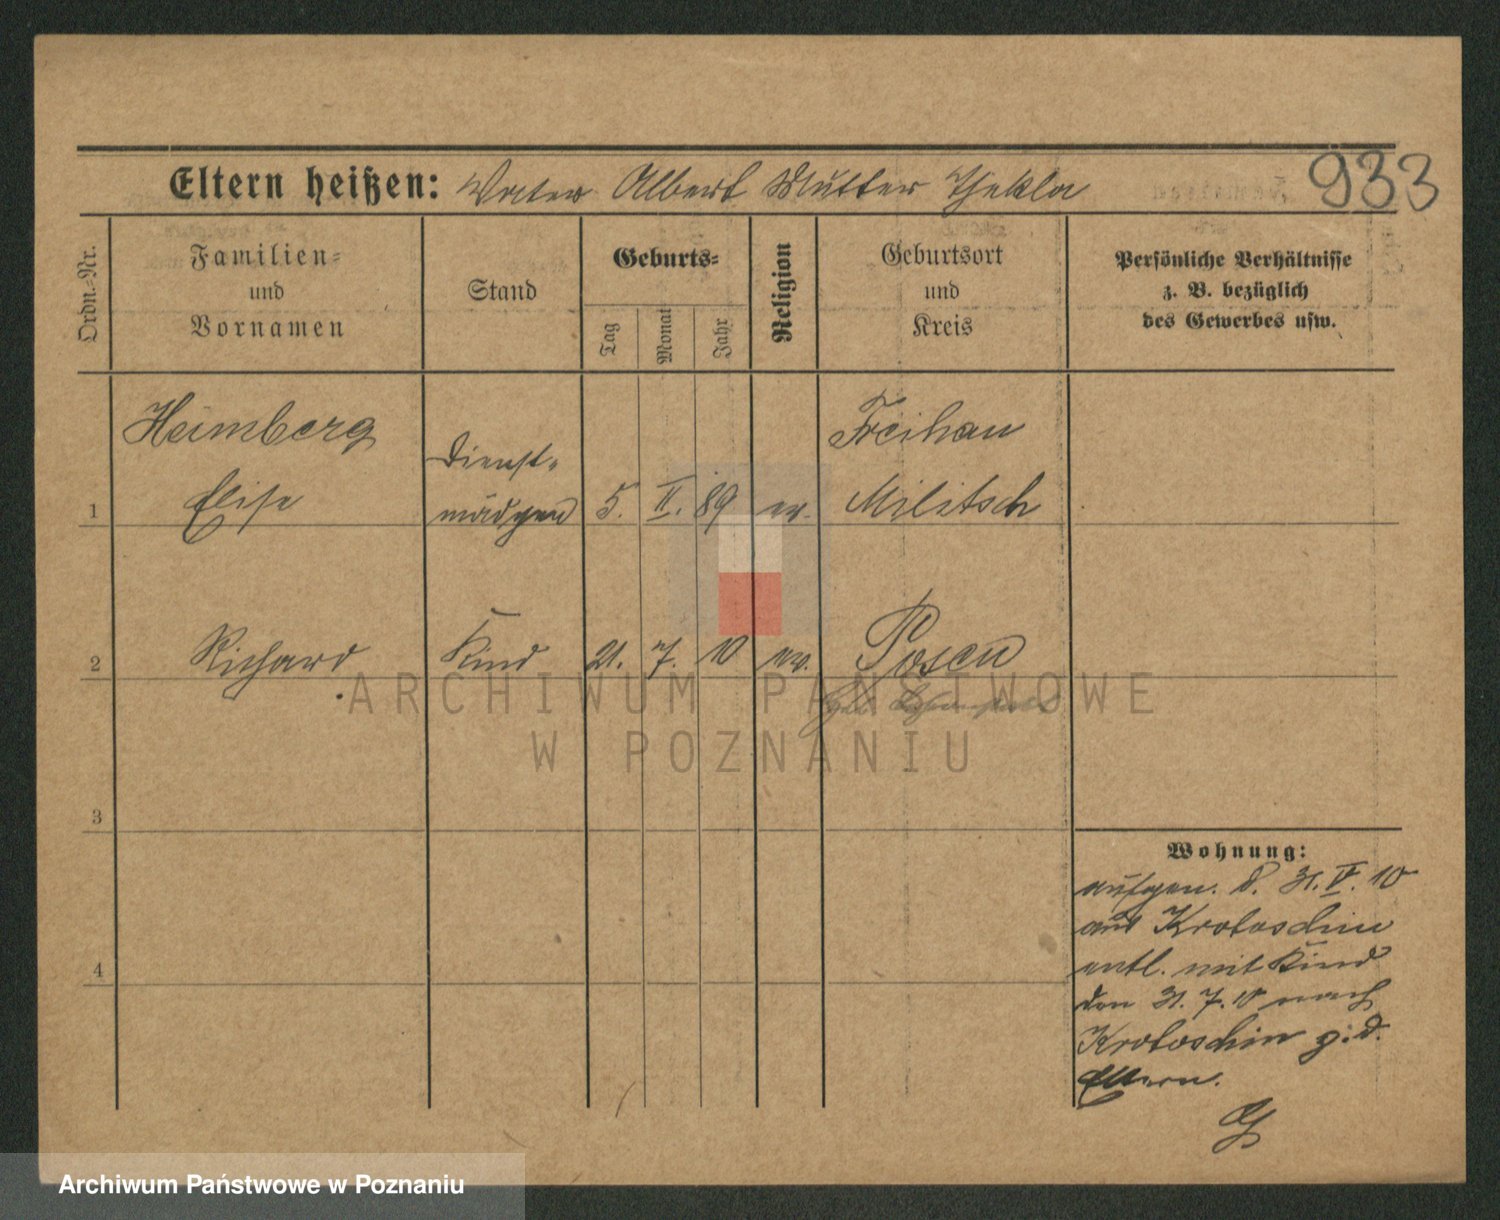 933
Eltern heißen: Vater Albert Mutter Thekla
Ordn.-Nr.
Familien-
und
Vornamen
Stand
Geburts-
Tag
Monat
Jahr
Religion
Geburtsort
und
Kreis
Persönliche Verhältnisse
z. B. bezüglich
des Gewerbes usw.
Heimberg
Elise
1
Dienst-
mädgen
5. II. 89
ev.
Freihan
Militsch
2
Richard
Kind
21. 7. 10
ev.
Posen
3
4
Wohnung:
aufgen. d. 31. V. 10
aus Krotoschin
entl. mit Kind
den 31. 7. 10 nach
Krotoschin z. d.
Eltern.
ARCHIWUM PAŃSTWOWE
W POZNANIU
Archiwum Państwowe w Poznaniu